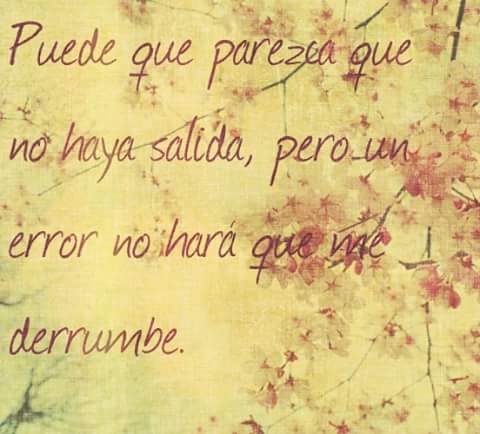 Puede que parezca que
no haya salida, pero un
error no hará que me
derrumbe.